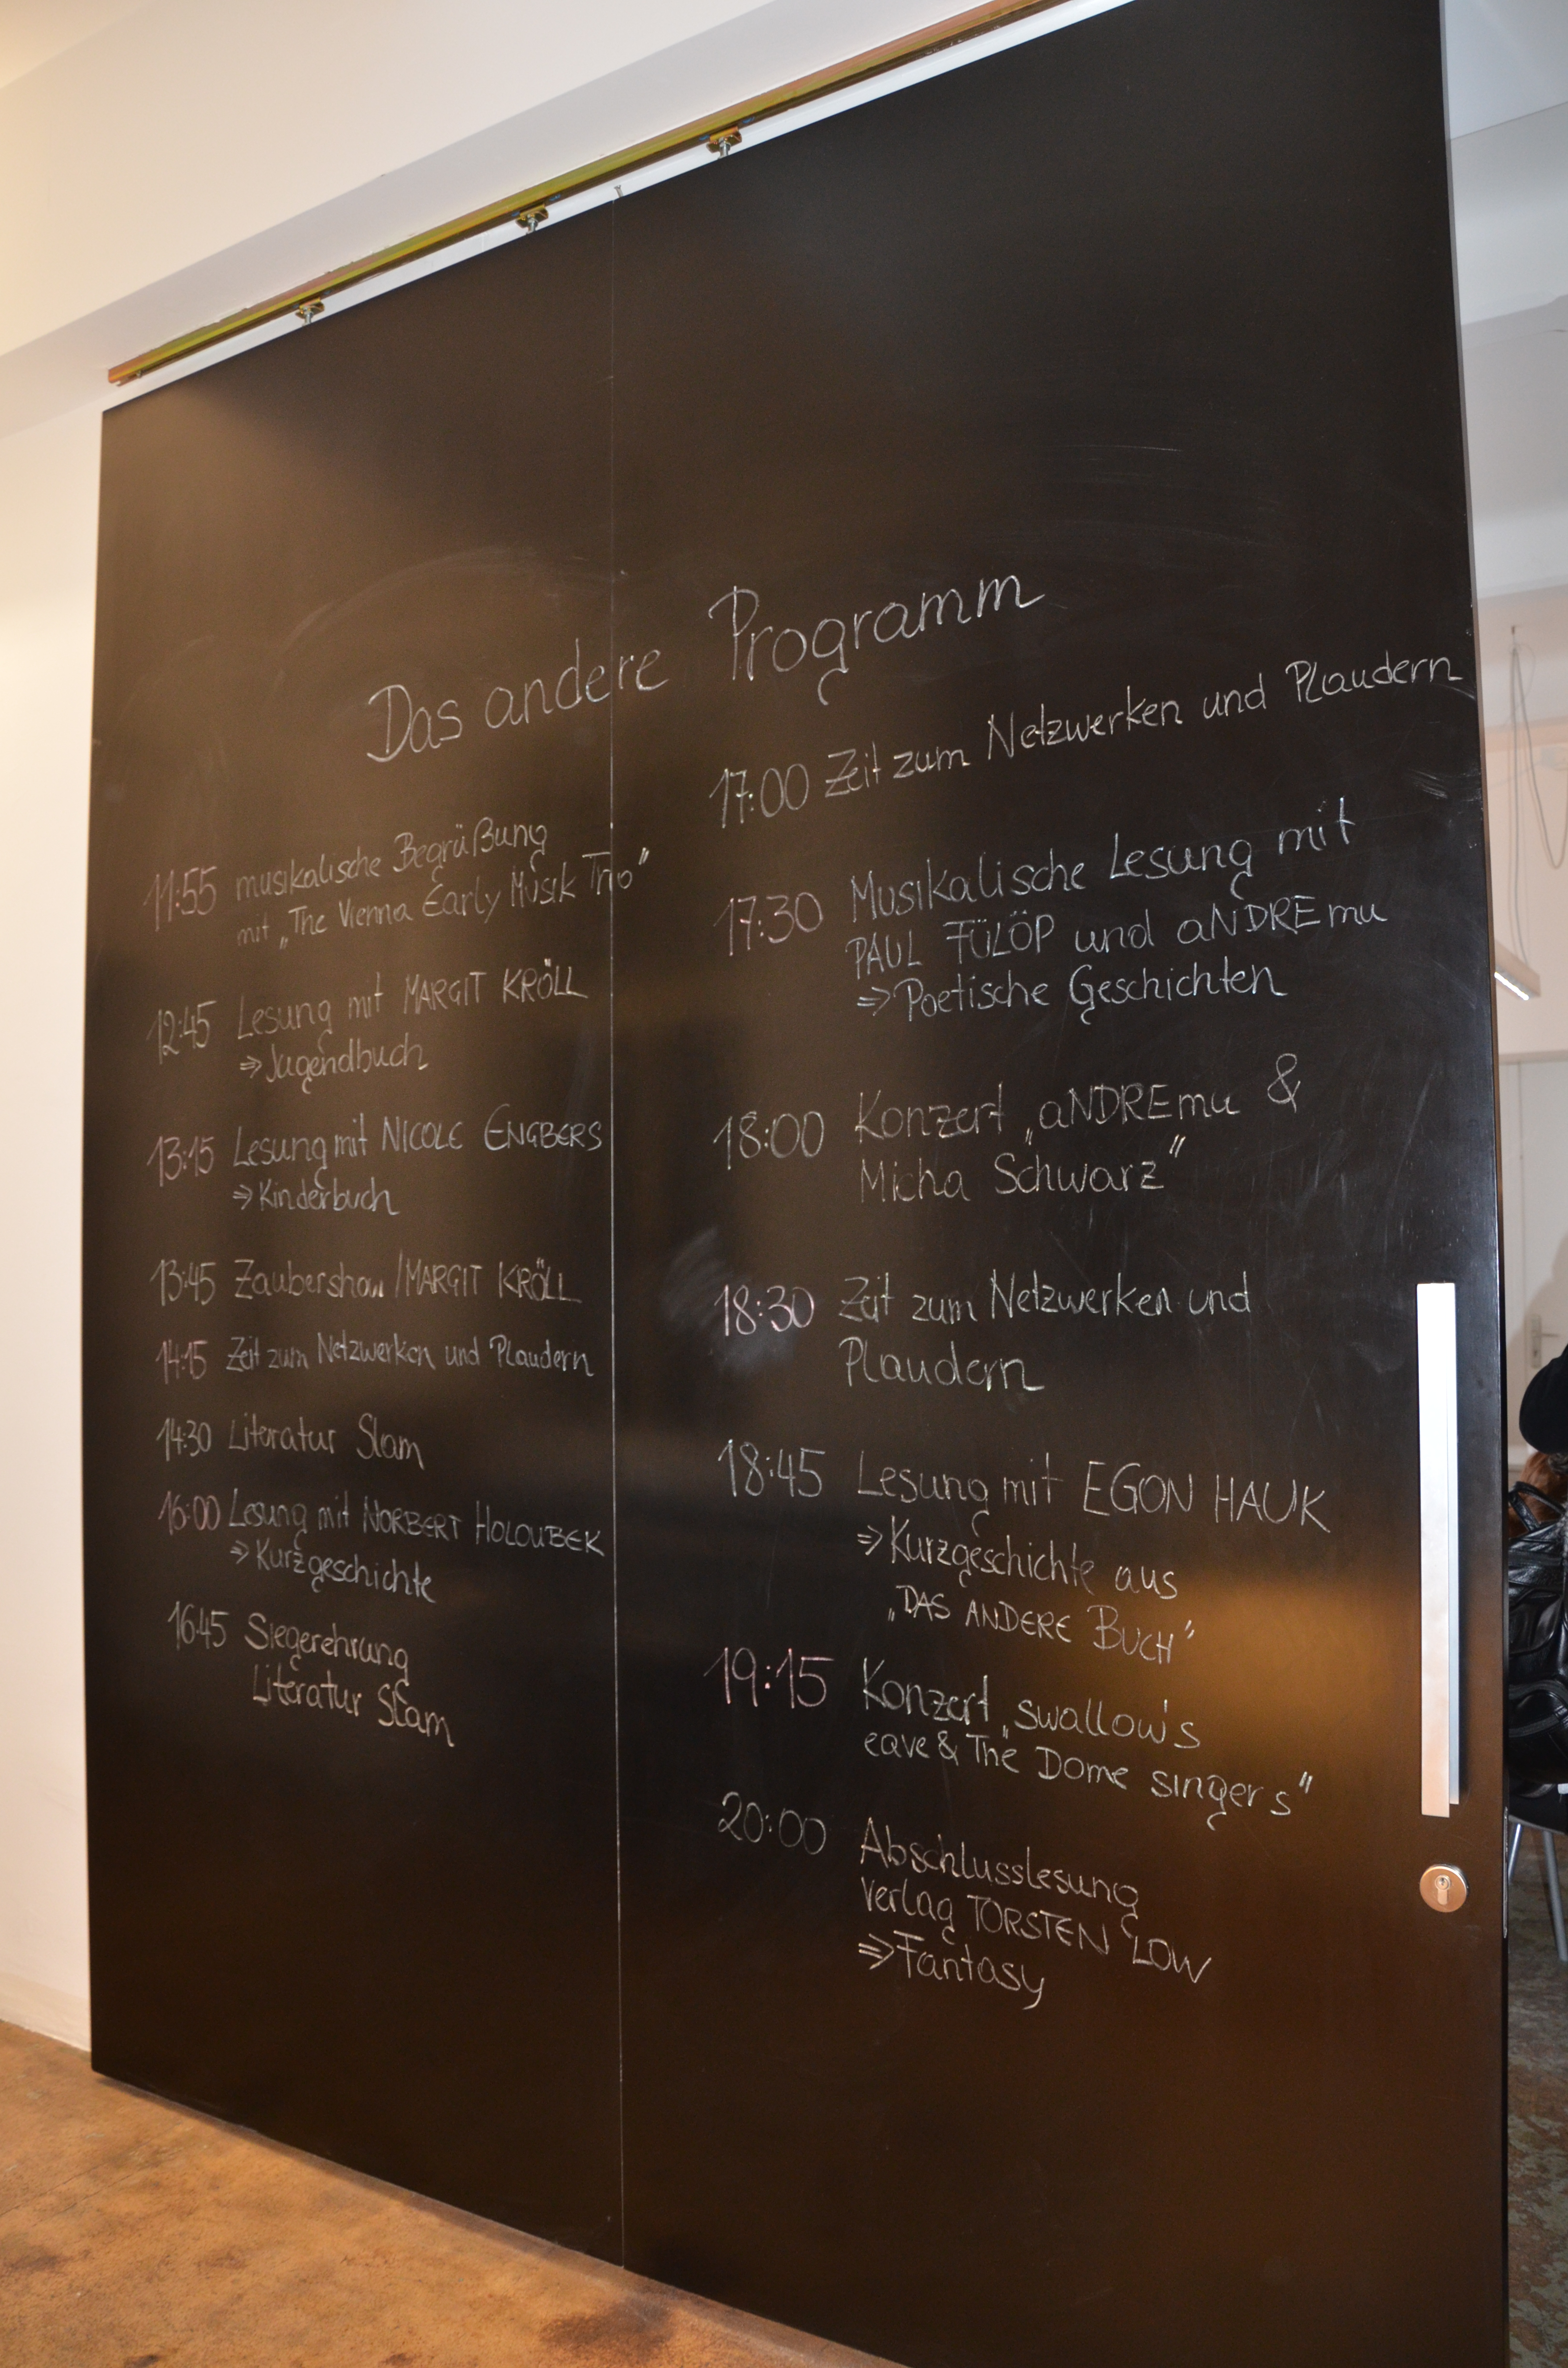 Das andere Programm
11:55 musikalische Begrüßung
mit „The Vienna Early Musik Trio"
12:45 Lesung mit MARGIT KRÖLL
⇒ Jugendbuch
13:15 Lesung mit NICOLE ENGBERS
⇒ Kinderbuch
13:45 Zaubershow / MARGIT KRÖLL
14:15 Zeit zum Netzwerken und Plaudern
14:30 Literatur Slam
16:00 Lesung mit NORBERT HOLOUBEK
⇒ Kurzgeschichte
16:45 Siegerehrung
Literatur Slam
17:00 Zeit zum Netzwerken und Plaudern
17:30 Musikalische Lesung mit
PAUL FÜLÖP und aNDREmu
⇒ Poetische Geschichten
18:00 Konzert „aNDREmu &
Micha Schwarz"
18:30 Zeit zum Netzwerken und
Plaudern
18:45 Lesung mit EGON HAUK
⇒ Kurzgeschichte aus
„DAS ANDERE BUCH"
19:15 Konzert „swallow's
eave & The Dome singers"
20:00 Abschlusslesung
Verlag TORSTEN LOW
⇒ Fantasy